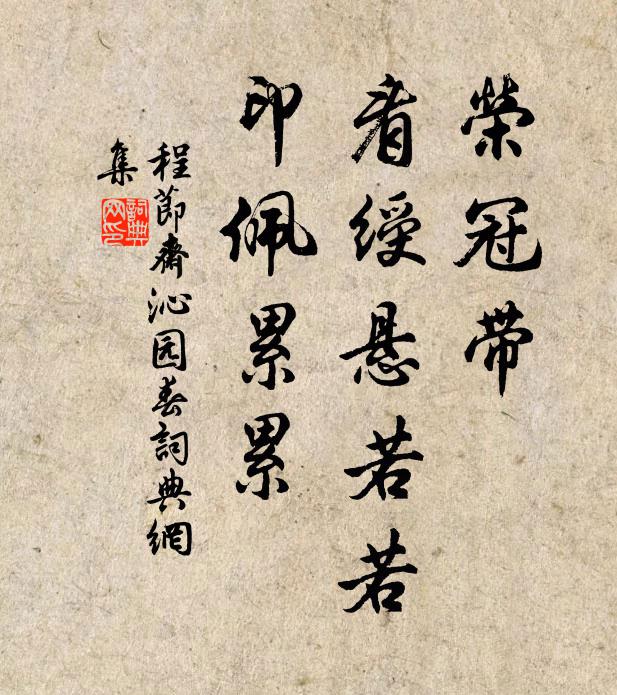 榮冠帶
看綬悬若若
印佩累累
程節齋沁园春詞典網
集
詞典網印